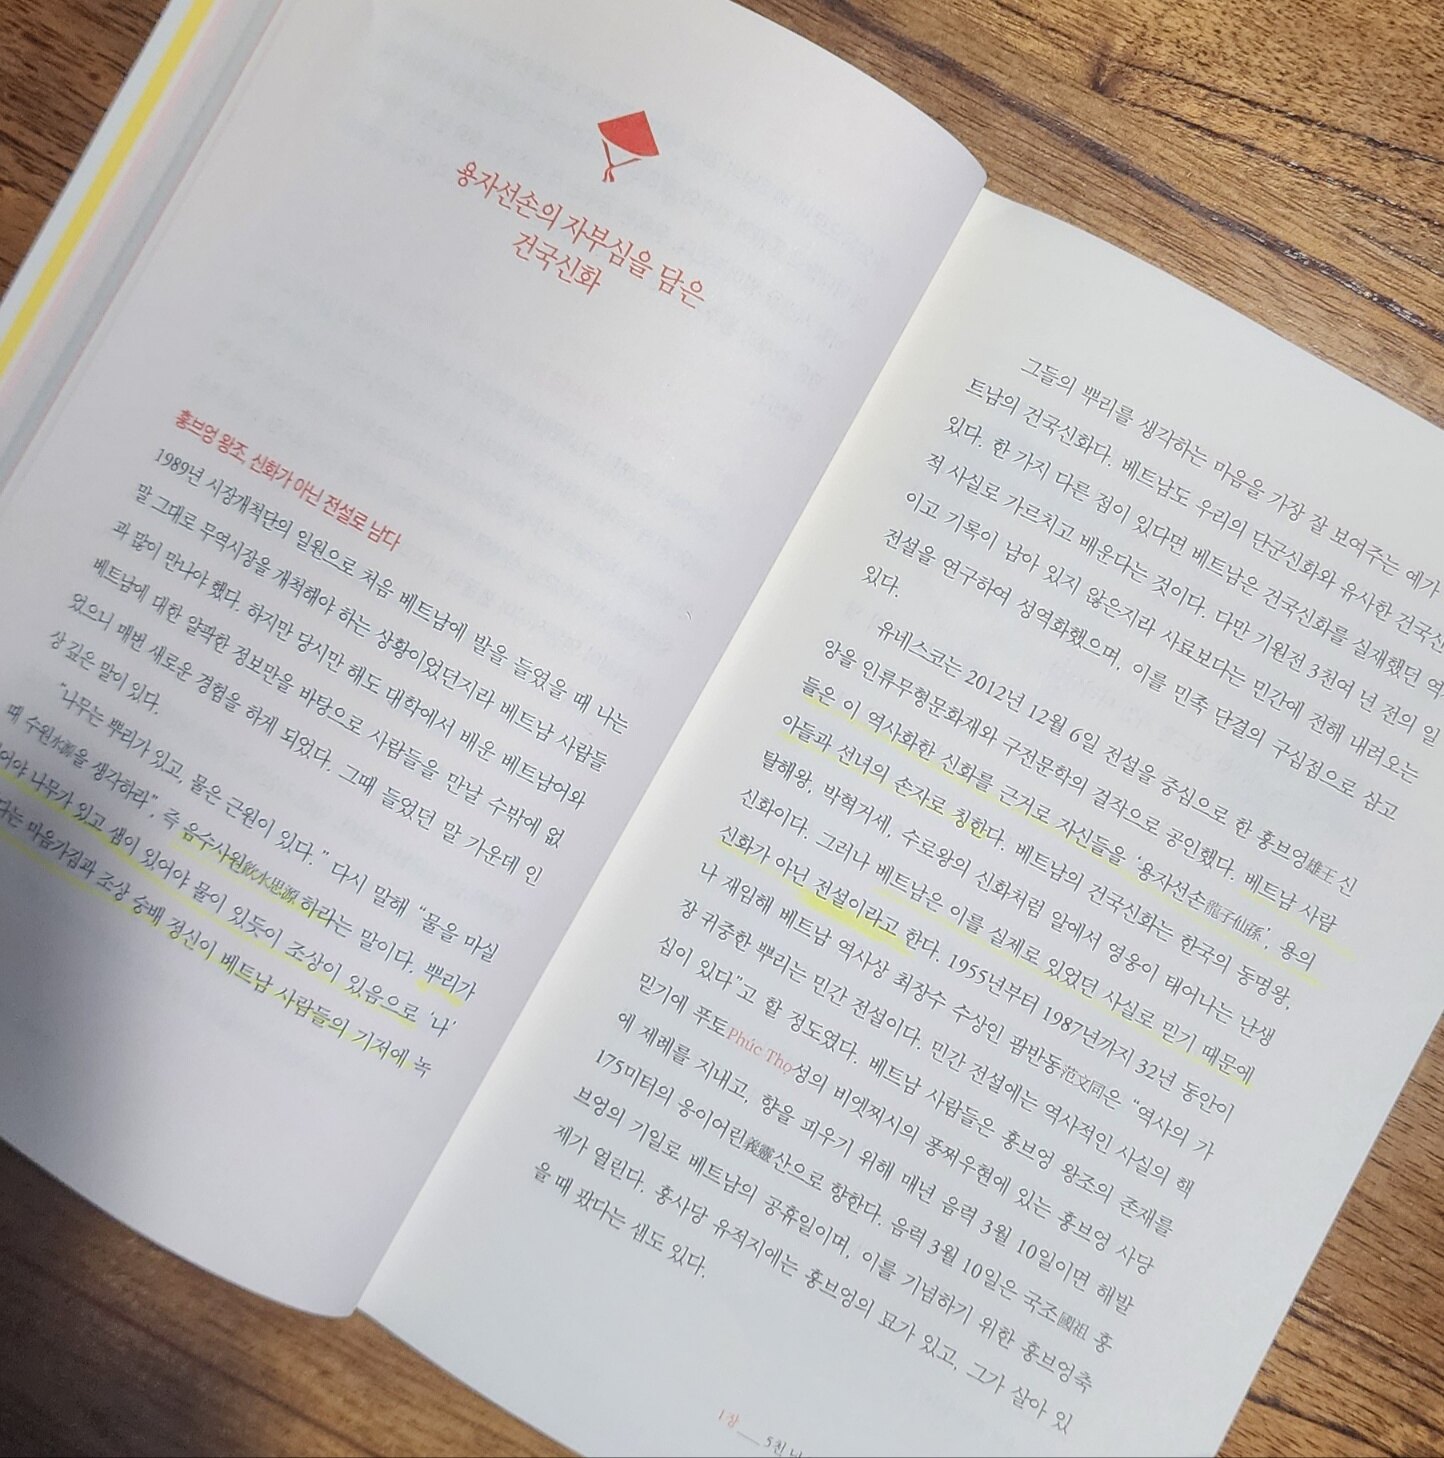 용자선손의 자부심을 담은
건국신화
홍브엉 왕조, 신화가 아닌 전설로 남다
1989년 시장개척단의 일원으로 처음 베트남에 발을 들였을 때 나는
말 그대로 무역시장을 개척해야 하는 상황이었던지라 베트남 사람들
과 많이 만나야 했다. 하지만 당시만 해도 대학에서 배운 베트남어와
베트남에 대한 얄팍한 정보만을 바탕으로 사람들을 만날 수밖에 없
었으니 매번 새로운 경험을 하게 되었다. 그때 들었던 말 가운데 인
상 깊은 말이 있다.
“나무는 뿌리가 있고, 물은 근원이 있다.” 다시 말해 “물을 마실
때 수원水源을 생각하라”, 즉 음수사원飮水思源 하라는 말이다. 뿌리가
어야 나무가 있고 샘이 있어야 물이 있듯이 조상이 있음으로 ‘나’
다는 마음가짐과 조상 숭배 정신이 베트남 사람들의 기저에 녹
그들의 뿌리를 생각하는 마음을 가장 잘 보여주는 예가
트남의 건국신화다. 베트남도 우리의 단군신화와 유사한 건국신
있다. 한 가지 다른 점이 있다면 베트남은 건국신화를 실재했던 역
적 사실로 가르치고 배운다는 것이다. 다만 기원전 3천여 년 전의 일
이고 기록이 남아 있지 않은지라 사료보다는 민간에 전해 내려오는
전설을 연구하여 성역화했으며, 이를 민족 단결의 구심점으로 삼고
있다.
유네스코는 2012년 12월 6일 전설을 중심으로 한 홍브엉雄王 신
앙을 인류무형문화재와 구전문학의 걸작으로 공인했다. 베트남 사람
들은 이 역사화한 신화를 근거로 자신들을 ‘용자선손龍子仙孫’, 용의
아들과 선녀의 손자로 칭한다. 베트남의 건국신화는 한국의 동명왕,
탈해왕, 박혁거세, 수로왕의 신화처럼 알에서 영웅이 태어나는 난생
신화이다. 그러나 베트남은 이를 실제로 있었던 사실로 믿기 때문에
신화가 아닌 전설이라고 한다. 1955년부터 1987년까지 32년 동안이
나 재임해 베트남 역사상 최장수 수상인 팜반동范文同은 “역사의 가
장 귀중한 뿌리는 민간 전설이다. 민간 전설에는 역사적인 사실의 핵
심이 있다”고 할 정도였다. 베트남 사람들은 홍브엉 왕조의 존재를
믿기에 푸토Phúc Thọ성의 비엣찌시의 퐁쩌우현에 있는 홍브엉 사당
에 제례를 지내고, 향을 피우기 위해 매년 음력 3월 10일이면 해발
175미터의 응이어린義靈산으로 향한다. 음력 3월 10일은 국조國祖 홍
브엉의 기일로 베트남의 공휴일이며, 이를 기념하기 위한 홍브엉축
제가 열린다. 홍사당 유적지에는 홍브엉의 묘가 있고, 그가 살아 있
을 때 팠다는 샘도 있다.
1장